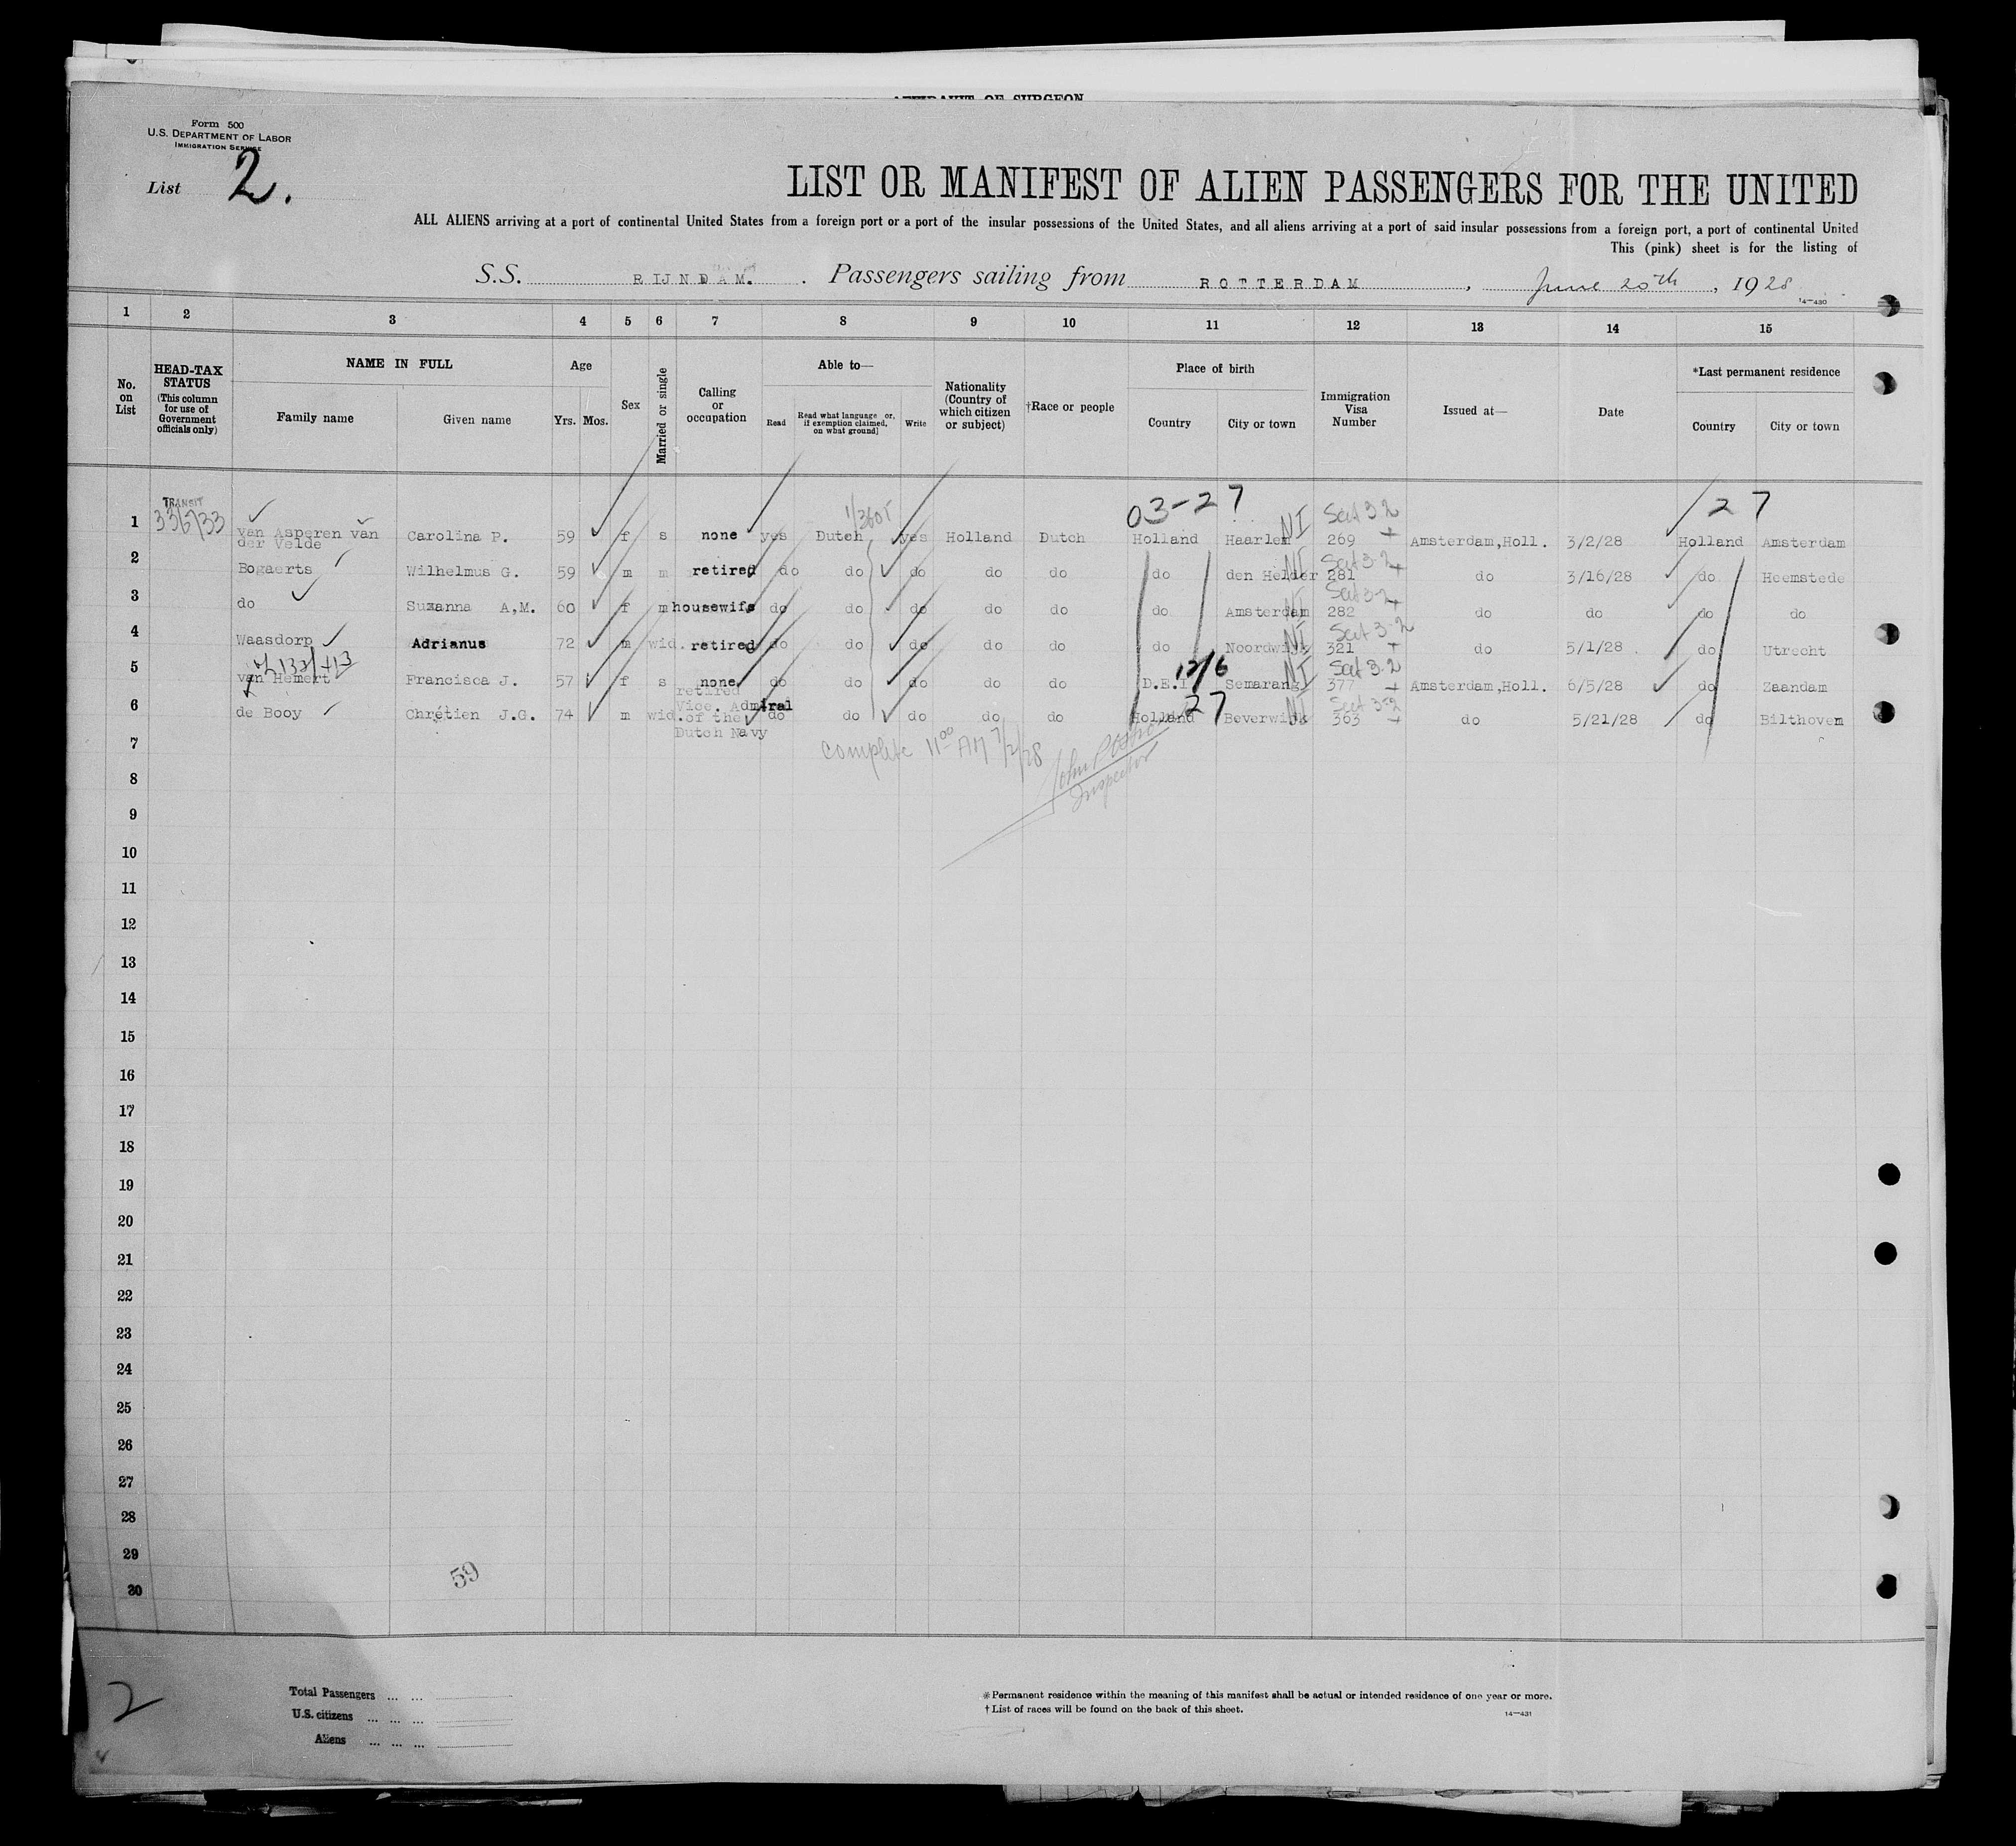 AFFIDAVIT OF SURGEON
Form 500
U.S. DEPARTMENT OF LABOR
IMMIGRATION SERVICE
List 2.
LIST OR MANIFEST OF ALIEN PASSENGERS FOR THE UNITED
ALL ALIENS arriving at a port of continental United States from a foreign port or a port of the insular possessions of the United States, and all aliens arriving at a port of said insular possessions from a foreign port, a port of continental United
This (pink) sheet is for the listing of
S.S. RIJNDAM. Passengers sailing from ROTTERDAM, June 20th, 1928
14—430
1 2 3 4 5 6 7 8 9 10 11 12 13 14 15
No. on List
HEAD-TAX STATUS (This column for use of Government officials only)
NAME IN FULL
Family name Given name
Age
Yrs. Mos.
Sex
Married or single
Calling or occupation
Able to—
Read Read what language or, if exemption claimed, on what ground] Write
Nationality (Country of which citizen or subject)
†Race or people
Place of birth
Country City or town
Immigration Visa Number
Issued at—
Date
*Last permanent residence
Country City or town
TRANSIT 03-27 Sect 3-2 27
1 van Asperen van der Velde Carolina P. 59 f s none yes Dutch yes Holland Dutch Holland Haarlem NI 269 Amsterdam,Holl. 3/2/28 Holland Amsterdam
Sect 3-2
2 Bogaerts Wilhelmus G. 59 m m retired do do do do do do den Helder NI 281 do 3/16/28 do Heemstede
Sect 3-2
3 do Suzanna A,M. 60 f m housewife do do do do do do Amsterdam 282 do do do do
Sect 3-2
4 Waasdorp Adrianus 72 m wid. retired do do do do do do Noordwijk NI 321 do 5/1/28 do Utrecht
12/6 Sect 3-2
5 van Hemert Francisca J. 57 f s none do do do do do D.E.I. Semarang NI 377 Amsterdam,Holl. 6/5/28 do Zaandam
27 Sect 3-2
6 de Booy Chrétien J.G. 74 m wid. retired Vice. Admiral of the Dutch Navy do do do do do Holland Beverwijk NI 363 do 5/21/28 do Bilthoven
7
complete 11 00 AM 7/2/28
John
Inspector
8
9
10
11
12
13
14
15
16
17
18
19
20
21
22
23
24
25
26
27
28
29
30
59
2
Total Passengers ... ...
U.S. citizens ... ... ...
Aliens ... ... ...
*Permanent residence within the meaning of this manifest shall be actual or intended residence of one year or more.
†List of races will be found on the back of this sheet.
14—431